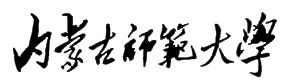 内蒙古師範大學